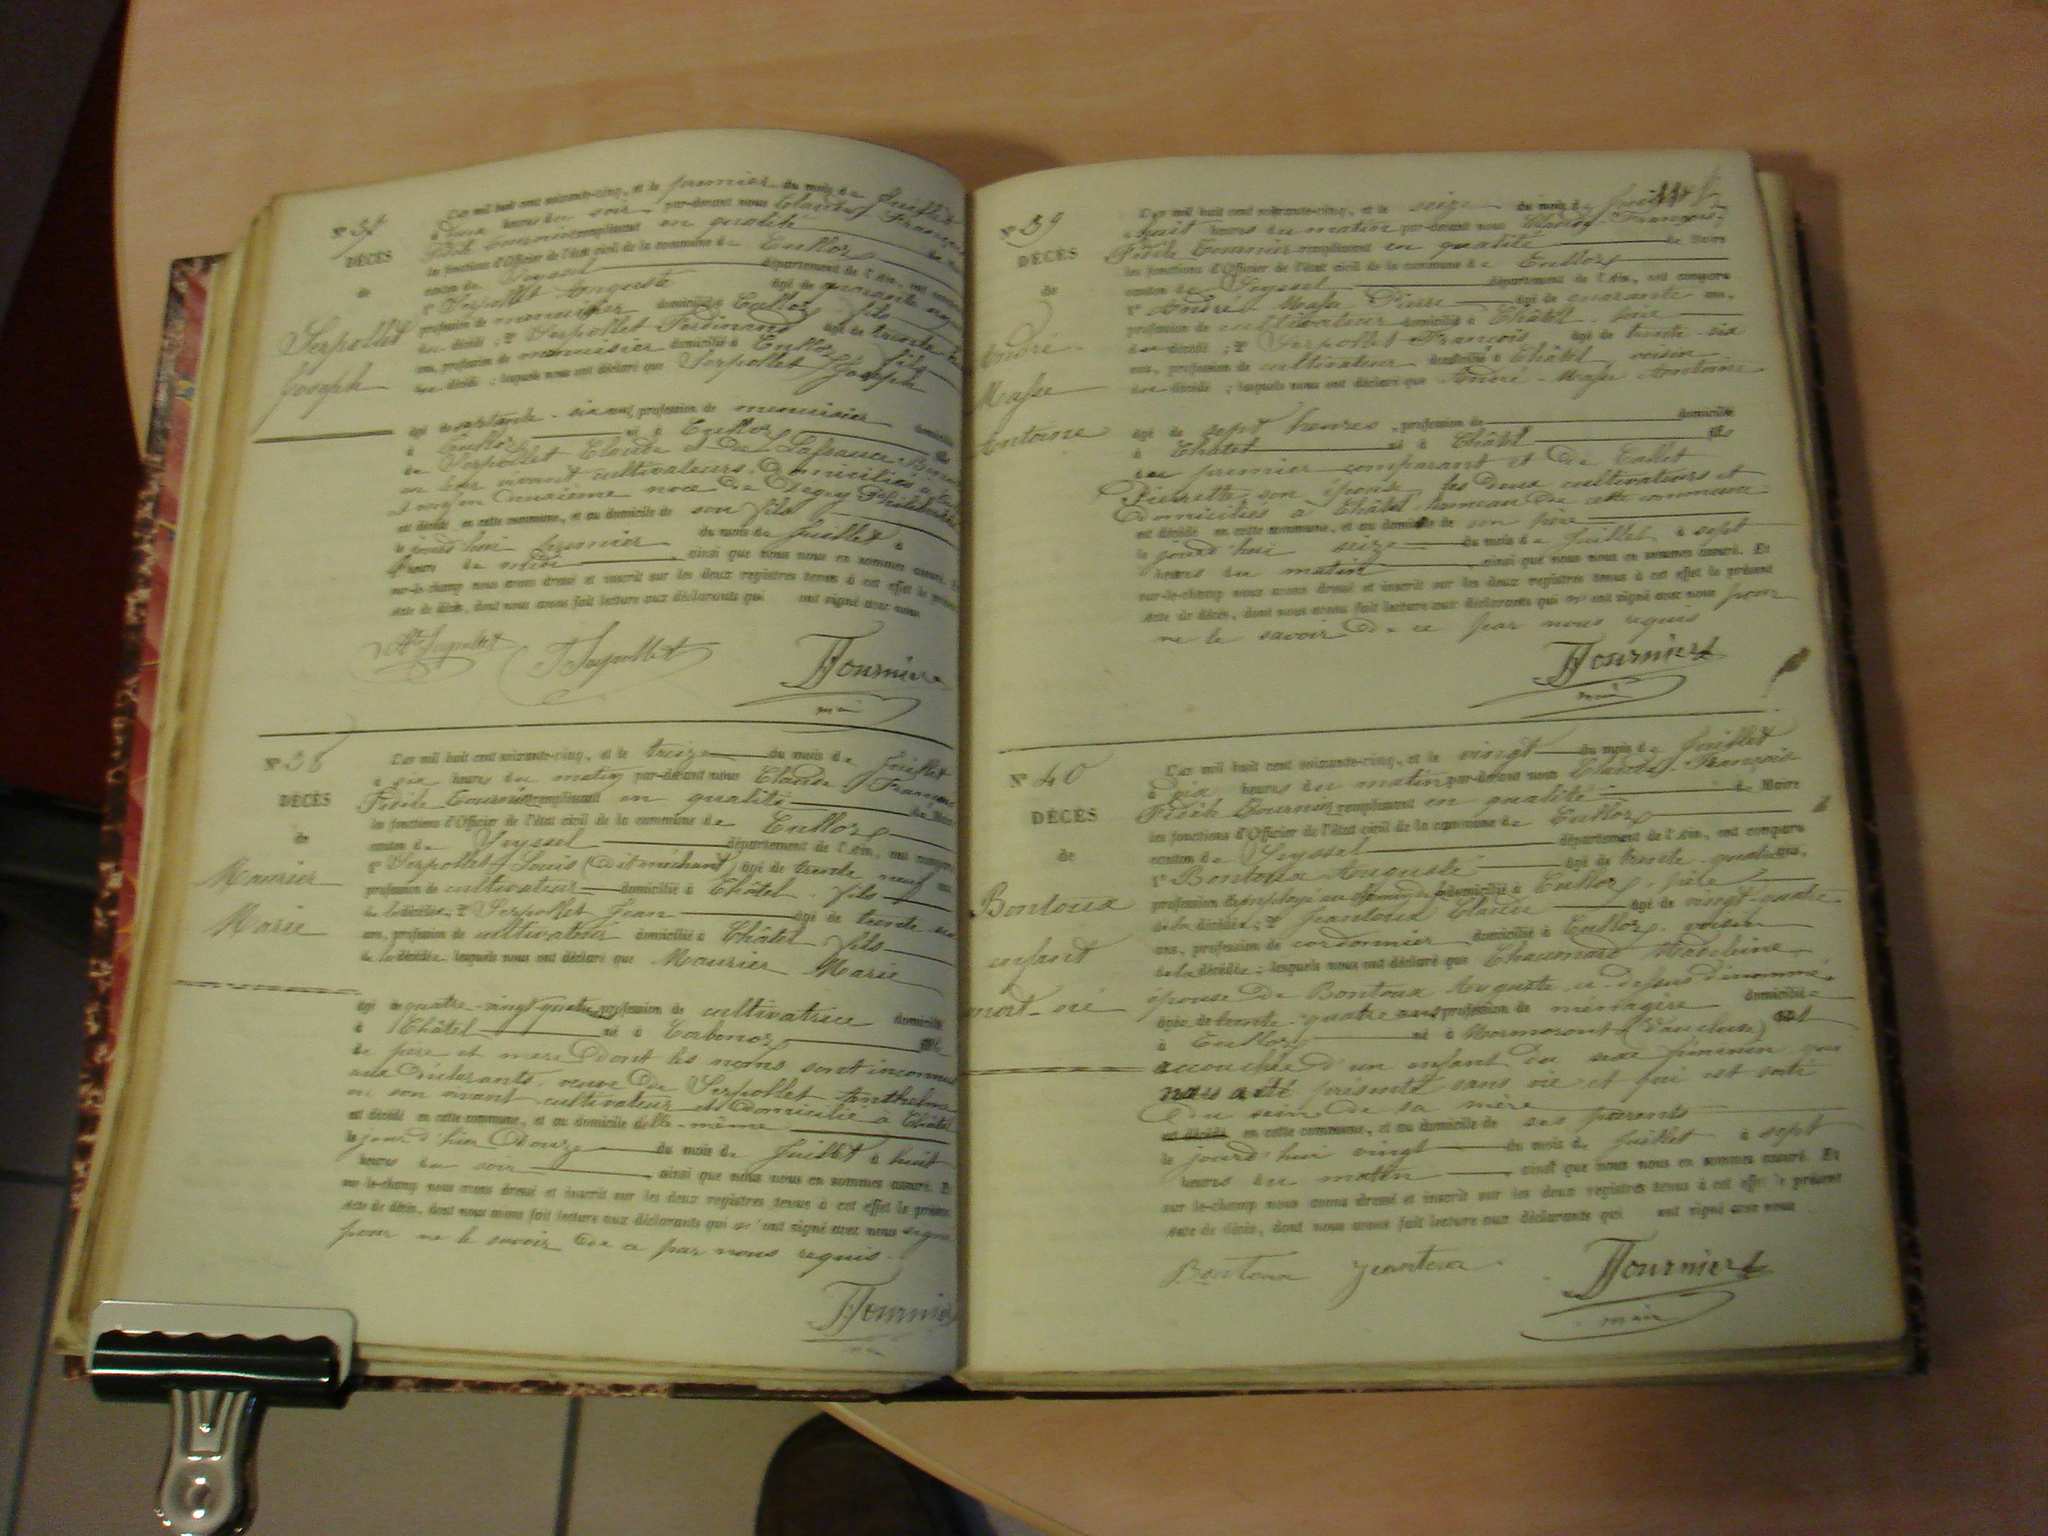 N° 37
DÉCÈS
de
Serpollet
Joseph
L'an mil huit cent soixante-cinq, et le premier du mois de Juillet
à deux heures du soir par-devant nous Claude François
Fidèle Fournier remplissant en qualité de Maire
les fonctions d'Officier de l'état civil de la commune de Culloz
canton de Seyssel département de l'Ain, ont comparu
1° Serpollet Auguste âgé de quarante
profession de menuisier domicilié à Culloz fils
du décédé ; 2° Serpollet Ferdinand âgé de trente
ans, profession de menuisier domicilié à Culloz fils
du décédé ; lesquels nous ont déclaré que Serpollet Joseph
âgé de septante-six ans, profession de menuisier domicilié
à Culloz né à Culloz fils
de Serpollet Claude et de Lafrance
en leur vivant cultivateurs domiciliés à
et veuf en deuxième noce de
est décédé en cette commune, et au domicile de son fils
le jourd'hui premier du mois de Juillet à
heure de midi ainsi que nous nous en sommes assuré. Et
sur-le-champ nous avons dressé et inscrit sur les deux registres tenus à cet effet le présent
acte de décès, dont nous avons fait lecture aux déclarants qui ont signé avec nous
Serpollet F Serpollet FFournier
maire
N° 38
DÉCÈS
de
Maurier
Marie
L'an mil huit cent soixante-cinq, et le treize du mois de Juillet
à six heures du matin par-devant nous Claude François
Fidèle Fournier remplissant en qualité de Maire
les fonctions d'Officier de l'état civil de la commune de Culloz
canton de Seyssel département de l'Ain, ont comparu
1° Serpollet Louis (dit méchant) âgé de trente neuf ans
profession de cultivateur domicilié à Châtel fils
de la décédée ; 2° Serpollet Jean âgé de trente six
ans, profession de cultivateur domicilié à Châtel fils
de la décédée lesquels nous ont déclaré que Maurier Marie
âgé de quatre-vingt-quatre profession de cultivatrice domicilié
à Châtel né à Corbonoz fille
de père et mère dont les noms sont inconnus
aux déclarants, veuve de Serpollet Anthelme
en son vivant cultivateur et domicilié à Châtel
est décédé en cette commune, et au domicile d'elle-même
le jour d'hier douze du mois de Juillet à huit
heures du soir ainsi que nous nous en sommes assuré. Et
sur-le-champ nous avons dressé et inscrit sur les deux registres tenus à cet effet le présent
acte de décès, dont nous avons fait lecture aux déclarants qui n'ont signé avec nous signé
pour ne le savoir de ce par nous requis.
FFournier
N° 39
DÉCÈS
de
André
Masse
Antoine
L'an mil huit cent soixante-cinq, et le seize du mois de Juillet
à huit heures du matin par-devant nous Claude-François-
Fidèle Fournier remplissant en qualité de Maire
les fonctions d'Officier de l'état civil de la commune de Culloz
canton de Seyssel département de l'Ain, ont comparu
1° André-Masse Pierre âgé de quarante ans,
profession de cultivateur domicilié à Châtel père
du décédé ; 2° Serpollet François âgé de trente-six
ans, profession de cultivateur domicilié à Châtel, voisin
du décédé ; lesquels nous ont déclaré que André-Masse Antoine
âgé de sept heures, profession de domicilié
à Châtel né à Châtel fils
du premier comparant et de Callet
Pierrette son épouse, les deux cultivateurs et
domiciliés à Châtel hameau de cette commune
est décédé en cette commune, et au domicile de son père
le jourd'hui seize du mois de Juillet à sept
heures du matin ainsi que nous nous en sommes assuré. Et
sur-le-champ nous avons dressé et inscrit sur les deux registres tenus à cet effet le présent
acte de décès, dont nous avons fait lecture aux déclarants qui n'ont signé avec nous pour
ne le savoir de ce par nous requis
FFournier
maire
N° 40
DÉCÈS
de
Bontoux
enfant
mort-né
L'an mil huit cent soixante-cinq, et le vingt du mois de Juillet
à dix heures du matin par-devant nous Claude-François-
Fidèle Fournier remplissant en qualité de Maire
les fonctions d'Officier de l'état civil de la commune de Culloz
canton de Seyssel département de l'Ain, ont comparu
1° Bontoux Auguste âgé de trente-quatre ans,
profession d'employé au chemin de fer domicilié à Culloz, père
de la décédée ; 2° Jeantoux Claude âgé de vingt-quatre
ans, profession de cordonnier domicilié à Culloz, voisin
de la décédée ; lesquels nous ont déclaré que Chaumard Madeleine,
épouse de Bontoux Auguste ci-dessus dénommé,
âgée de trente-quatre ans profession de ménagère domicilié
à Culloz né à Mormoront (Vaucluse) est
accouchée d'un enfant du sexe féminin qui
nous a été présenté sans vie et qui est sorti
du sein de sa mère
est décédé en cette commune, et au domicile de ses parents
le jourd'hui vingt du mois de Juillet à sept
heures du matin ainsi que nous nous en sommes assuré. Et
sur-le-champ nous avons dressé et inscrit sur les deux registres tenus à cet effet le présent
acte de décès, dont nous avons fait lecture aux déclarants qui ont signé avec nous
Bontoux Jeantoux FFournier
maire